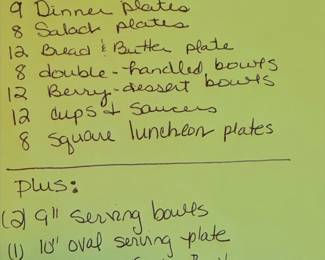 9 Dinner plates
8 Salad plates
12 Bread & Butter plate
8 double-handled bowls
12 Berry-dessert bowls
12 cups & saucers
8 square luncheon plates
Plus:
(2) 9" serving bowls
(1) 10" oval serving plate